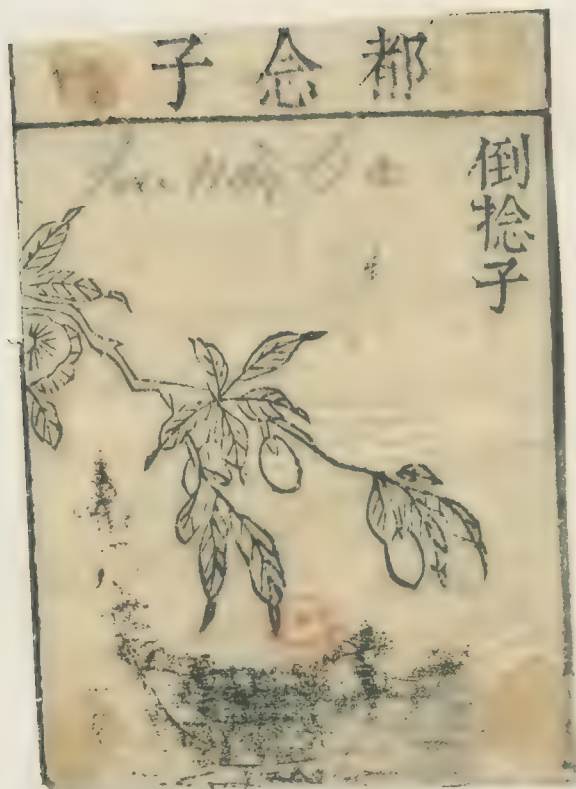 都念子
倒捻子